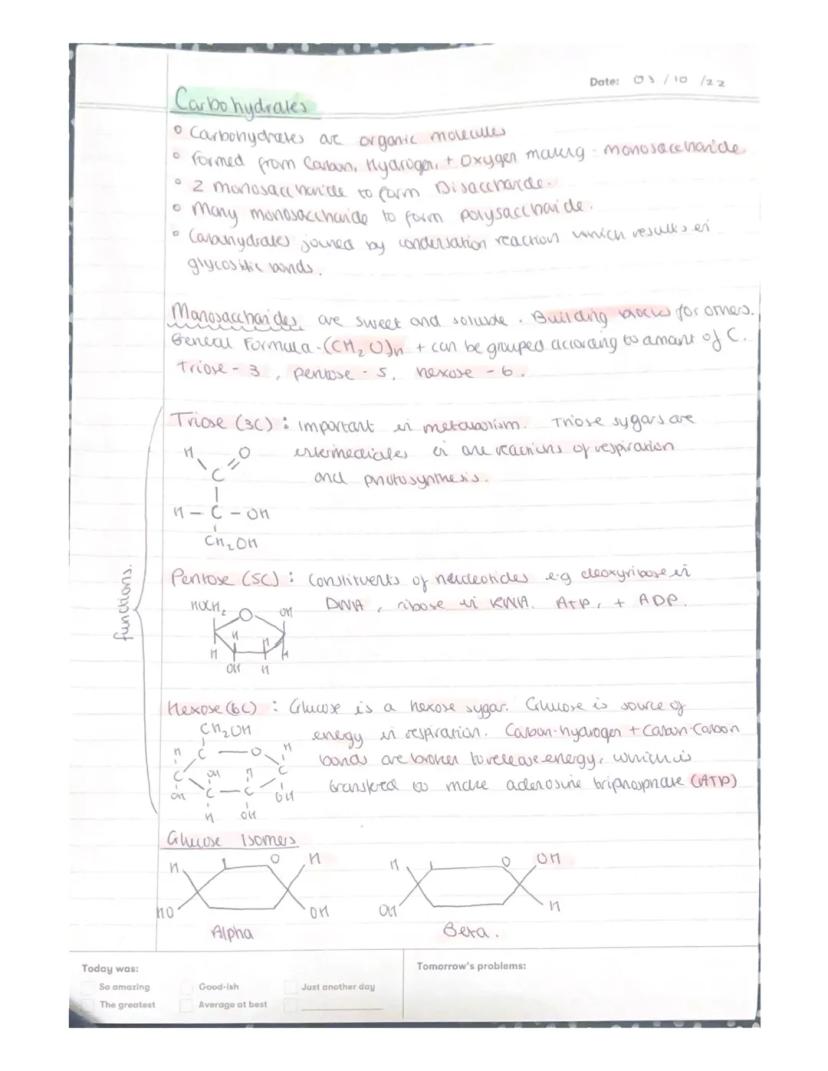 Date: 03/10/22
Carbohydrates
° Carbohydrates are organic molecules
° formed from Carbon, Hydrogen, + Oxygen making - monosaccharide
° 2 monosaccharide to form Disaccharide.
° Many monosaccharide to form polysaccharide.
° Carbohydrates joined by condensation reaction which results in
glycositic bonds.
Monosaccharides are sweet and soluble. Building blocks for others.
General Formula - (CH₂O)n + can be grouped according to amount of C.
Triose - 3, pentose - 5, hexose - 6.
functions.
Triose (3C) : Important in metabolism. Triose sugars are
intermediates in the reactions of respiration
and photosynthesis.
H O
C
H - C - OH
CH₂OH
Pentose (5C) : Constituents of nucleotides e.g deoxyribose in
DNA, ribose in RNA. ATP, + ADP.
HOCH₂ O OH
H H H H
OH H
Hexose (6C) : Glucose is a hexose sugar. Glucose is source of
energy in respiration. Carbon-hydrogen + Carbon-Carbon
bonds are broken to release energy, which is
transfered to make adenosine triphosphate (ATP)
CH₂OH
H C O H
C OH H C
OH C C OH
H OH
Glucose Isomers
H O H
HO OH
Alpha
H O OH
OH H
Beta.
Today was:
So amazing Good-ish Just another day
The greatest Average at best
Tomorrow's problems: